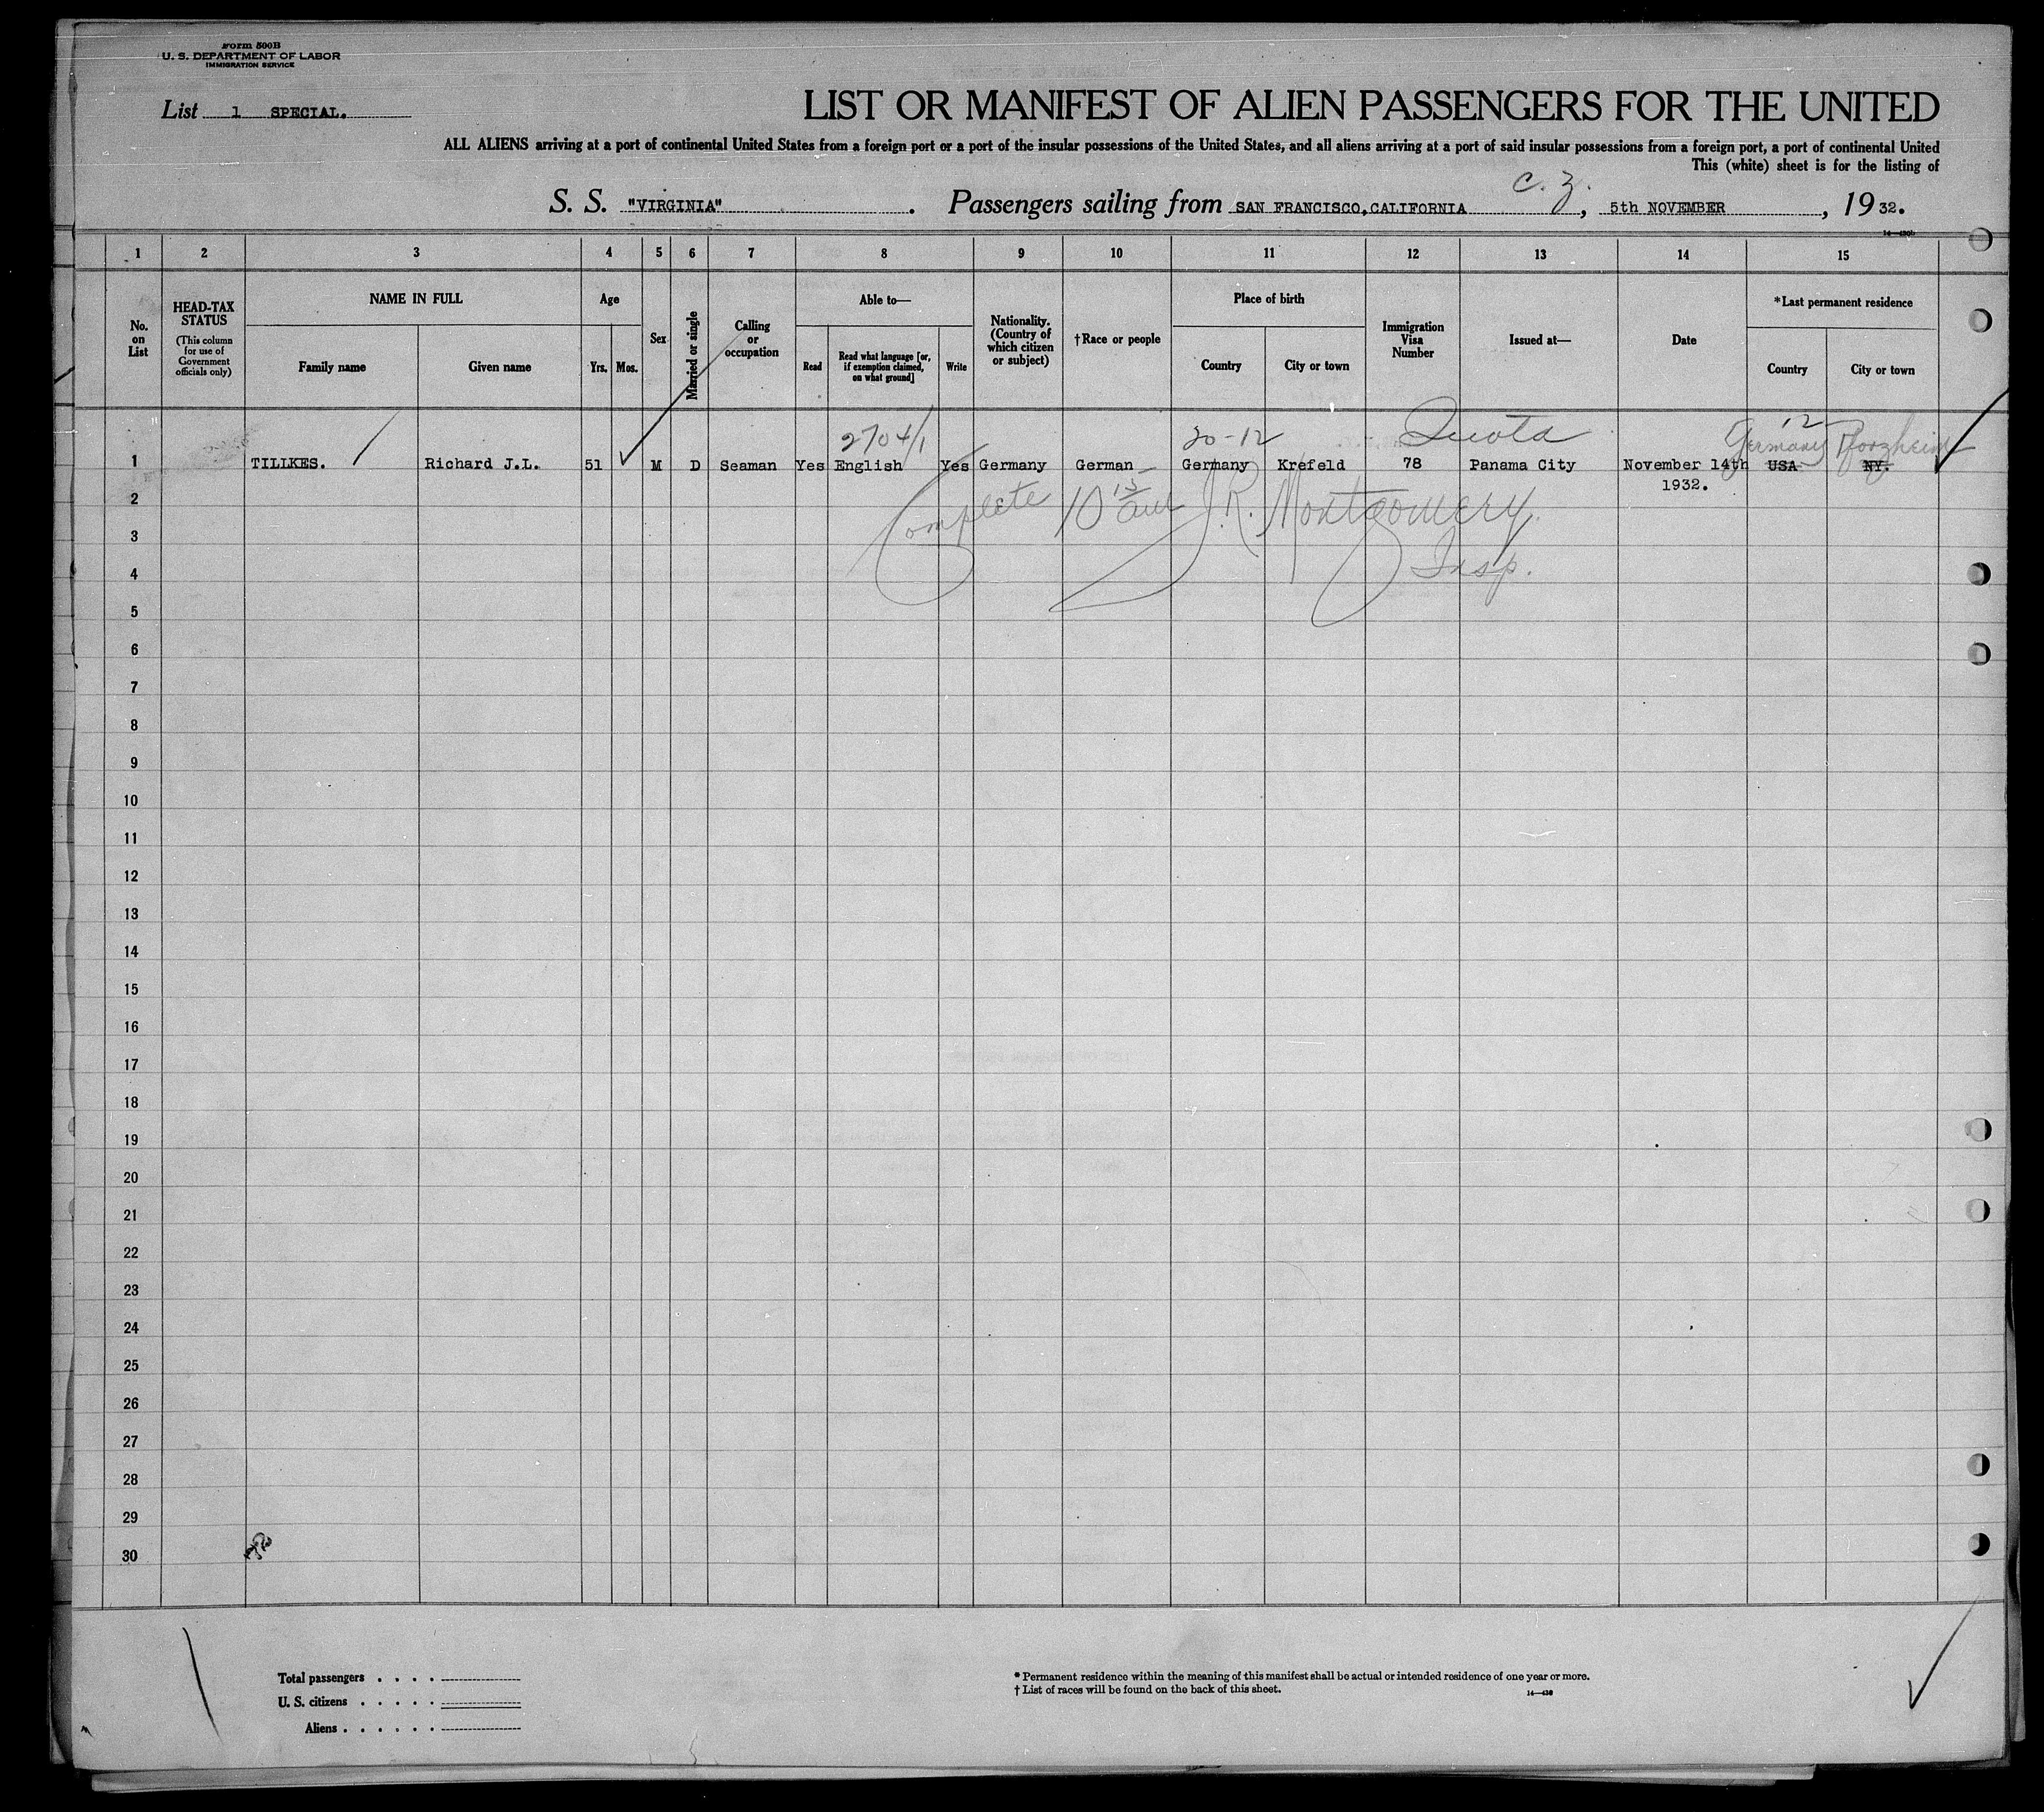 Form 500B
U. S. DEPARTMENT OF LABOR
IMMIGRATION SERVICE
List 1 SPECIAL.
LIST OR MANIFEST OF ALIEN PASSENGERS FOR THE UNITED
ALL ALIENS arriving at a port of continental United States from a foreign port or a port of the insular possessions of the United States, and all aliens arriving at a port of said insular possessions from a foreign port, a port of continental United
This (white) sheet is for the listing of
C. Z.
S. S. "VIRGINIA" . Passengers sailing from SAN FRANCISCO, CALIFORNIA , 5th NOVEMBER , 19 32.
1 2 3 4 5 6 7 8 9 10 11 12 13 14 15
No. on List
HEAD-TAX STATUS
(This column for use of Government officials only)
NAME IN FULL
Family name Given name
Age
Yrs. Mos.
Sex
Married or single
Calling or occupation
Able to—
Read Read what language [or, if exemption claimed, on what ground] Write
Nationality. (Country of which citizen or subject)
†Race or people
Place of birth
Country City or town
Immigration Visa Number
Issued at—
Date
*Last permanent residence
Country City or town
2704/1 20-12 Quota 12
Germany Pforzheim
1 TILLKES. Richard J.L. 51 M D Seaman Yes English Yes Germany German Germany Krefeld 78 Panama City November 14th USA NY.
1932.
Complete 10 15 am J. R. Montgomery
Insp.
2
3
4
5
6
7
8
9
10
11
12
13
14
15
16
17
18
19
20
21
22
23
24
25
26
27
28
29
30
Total passengers . . . .
U. S. citizens . . . . .
Aliens . . . . . .
* Permanent residence within the meaning of this manifest shall be actual or intended residence of one year or more.
† List of races will be found on the back of this sheet.